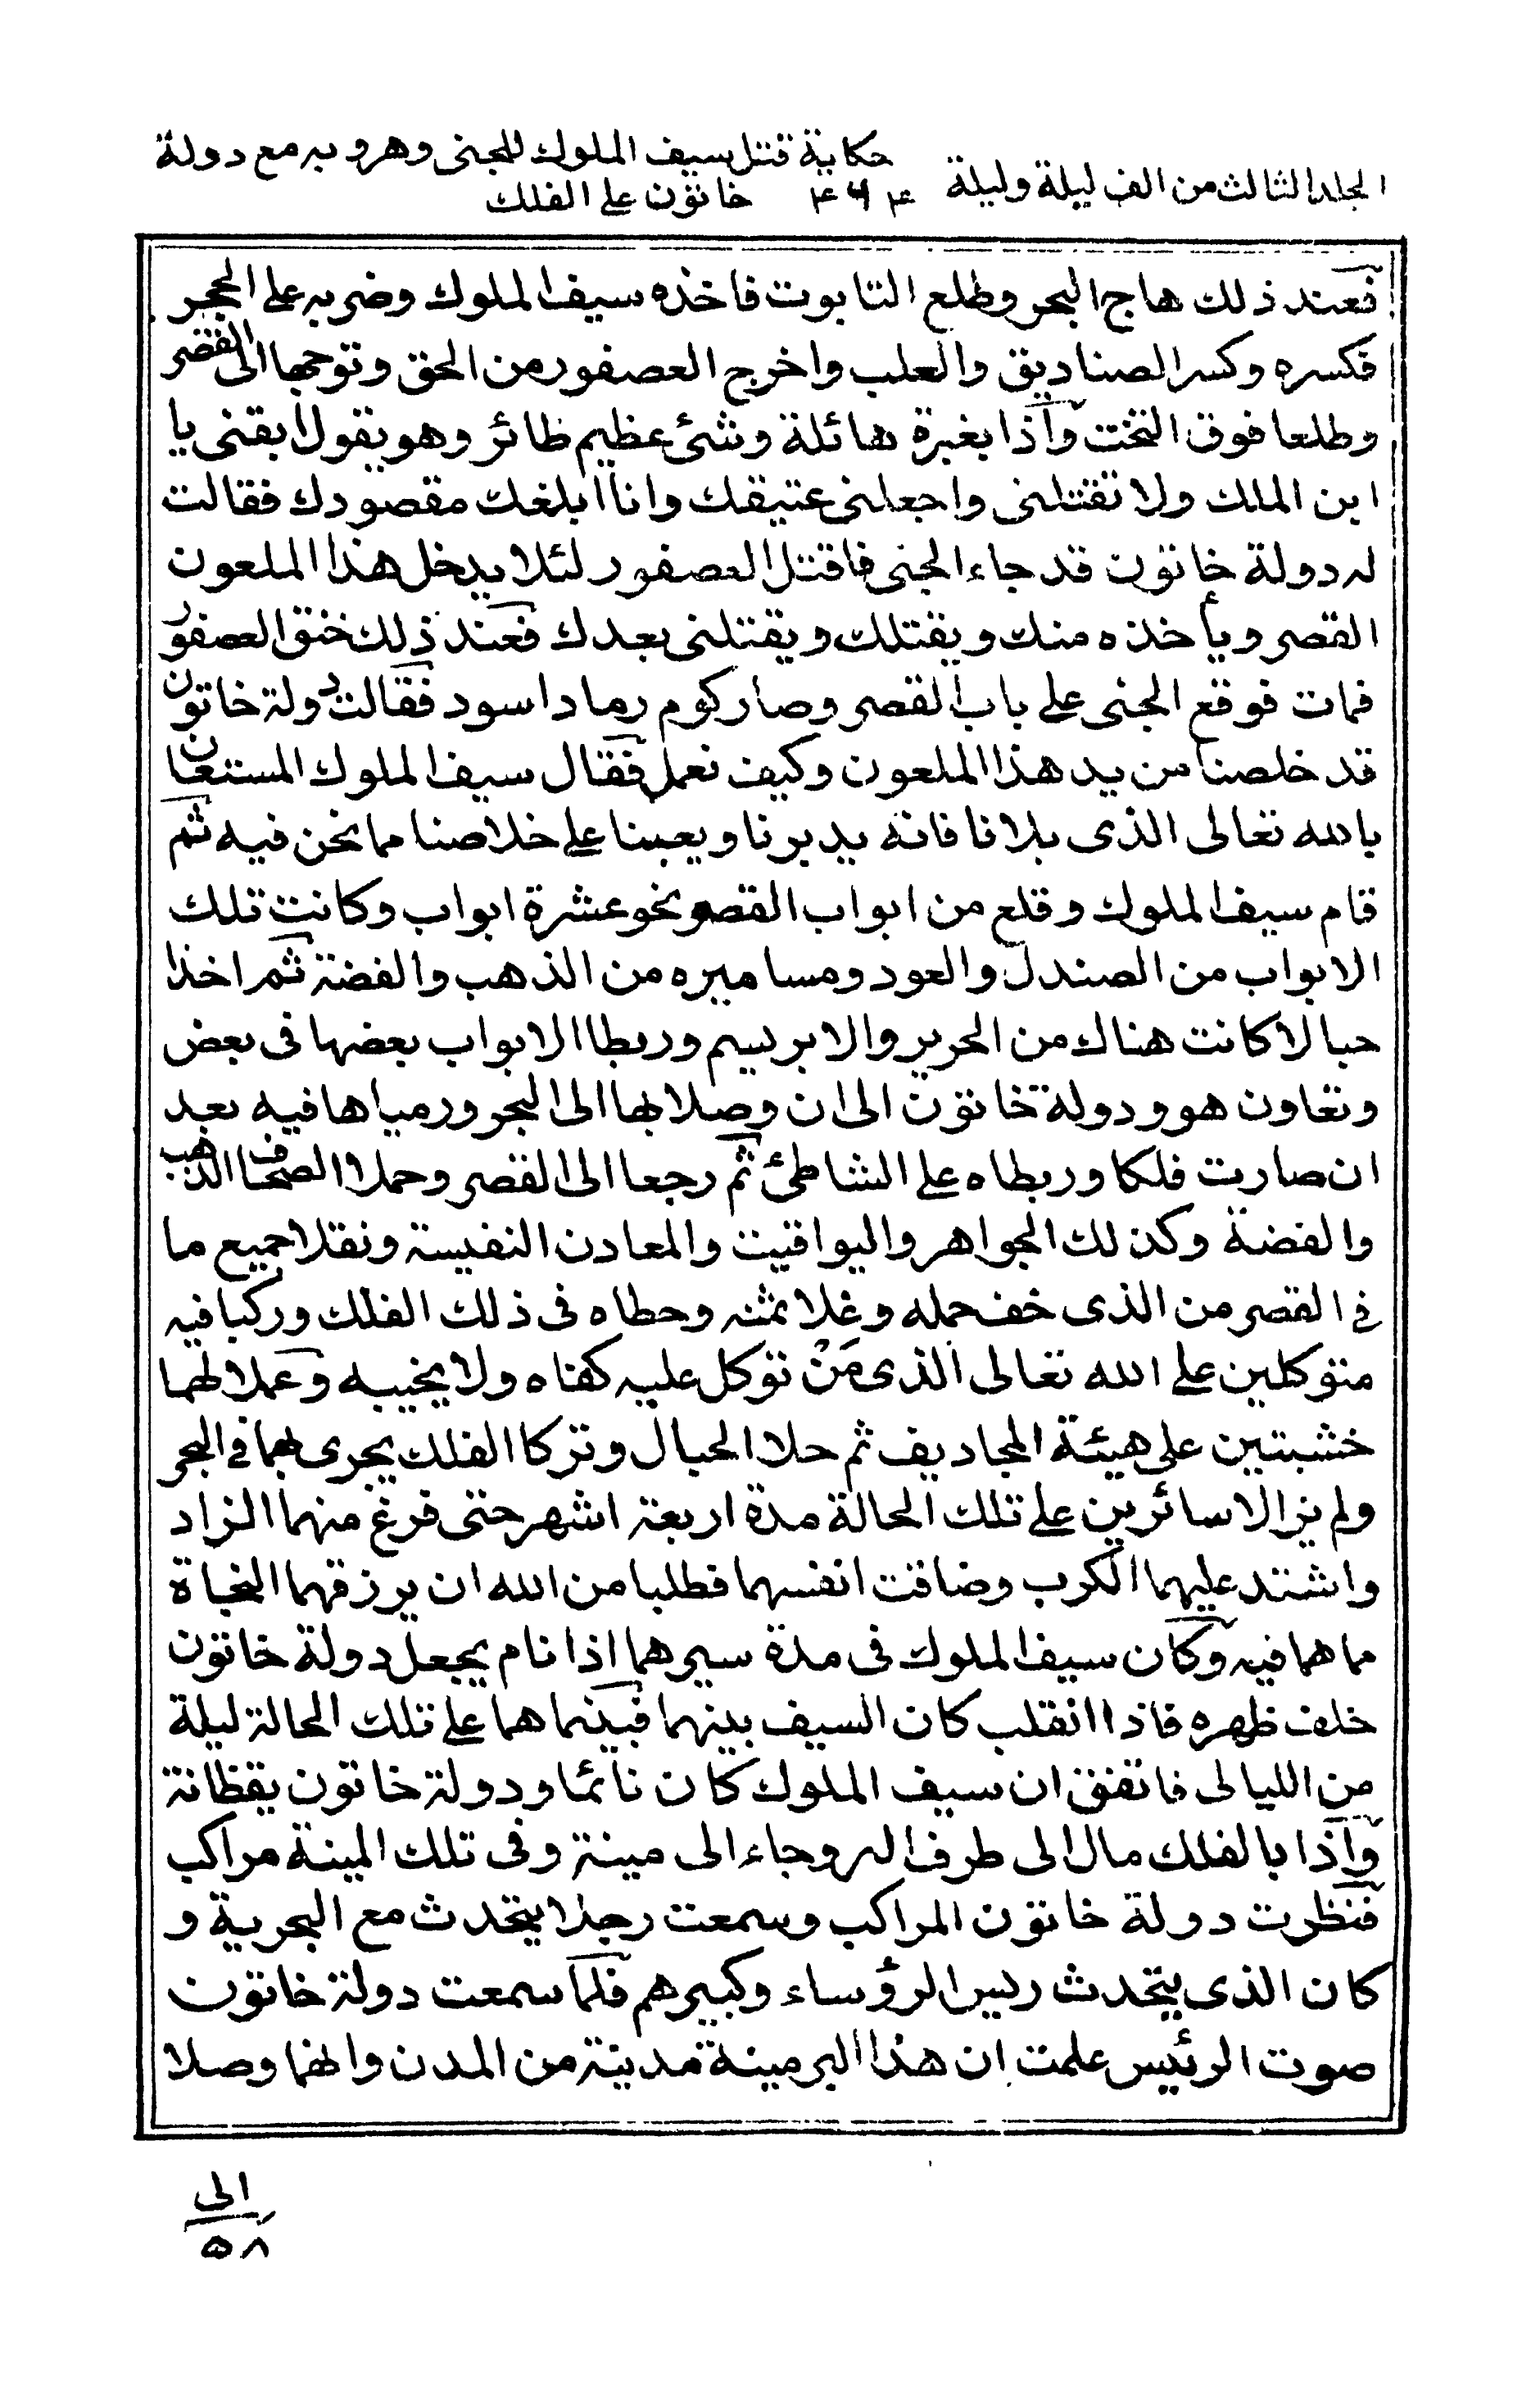 المجلد الثالث من الف ليلة وليلة
حكاية قتل سيف الملوك للجنى وهروبه مع دولة
خاتون على الفلك
فعند ذلك هاج البحر وطلع التابوت فاخذه سيف الملوك وضربه على الحجر
فكسره وكسر الصناديق والعلب واخرج العصفور من الحق وتوجها الى القصر
وطلعا فوق التخت واذا بغبرة هائلة وشئ عظيم طائر وهو يقول ابقنى يا
ابن الملك ولا تقتلنى واجعلنى عتيقك وانا ابلغك مقصودك فقالت
له دولة خاتون قد جاء الجنى فاقتل العصفور لئلا يدخل هذا الملعون
القصر ويأخذه منك ويقتلك ويقتلنى بعدك فعند ذلك خنق العصفور
فمات فوقع الجنى على باب القصر وصار كوم رماد اسود فقالت دولة خاتون
قد خلصنا من يد هذا الملعون وكيف نعمل فقال سيف الملوك المستعان
بالله تعالى الذى بلانا فانه يدبرنا ويعيننا على خلاصنا مما نحن فيه ثم
قام سيف الملوك وقلع من ابواب القصر نحو عشرة ابواب وكانت تلك
الابواب من الصندل والعود ومساميره من الذهب والفضة ثم اخذا
حبالا كانت هناك من الحرير والابريسم وربطا الابواب بعضها فى بعض
وتعاون هو ودولة خاتون الى ان وصلا بها الى البحر ورمياها فيه بعد
ان صارت فلكا وربطاه على الشاطئ ثم رجعا الى القصر وحملا الصحاف الذهب
والفضة وكذلك الجواهر واليواقيت والمعادن النفيسة ونقلا جميع ما
فى القصر من الذى خف حمله وغلا ثمنه وحطاه فى ذلك الفلك وركبا فيه
متوكلين على الله تعالى الذى مَنْ توكل عليه كفاه ولا يخيبه وعملا لهما
خشبتين على هيئة المجاديف ثم حلا الحبال وتركا الفلك يجرى بهما فى البحر
ولم يزالا سائرين على تلك الحالة مدة اربعة اشهر حتى فرغ منهما الزاد
واشتد عليهما الكرب وضاقت انفسهما فطلبا من الله ان يرزقهما النجاة
مما هما فيه وكان سيف الملوك فى مدة سيرهما اذا نام يجعل دولة خاتون
خلف ظهره فاذا انقلب كان السيف بينهما فبينما هما على تلك الحالة ليلة
من الليالى فاتفق ان سيف الملوك كان نائما ودولة خاتون يقظانة
واذا بالفلك مال الى طرف البر وجاء الى مينة وفى تلك المينة مراكب
فنظرت دولة خاتون المراكب وسمعت رجلا يتحدث مع البحرية و
كان الذى يتحدث ريس الرؤساء وكبيرهم فلما سمعت دولة خاتون
صوت الرئيس علمت ان هذا البر مينة مدينة من المدن وانهما وصلا
الى
٥٨